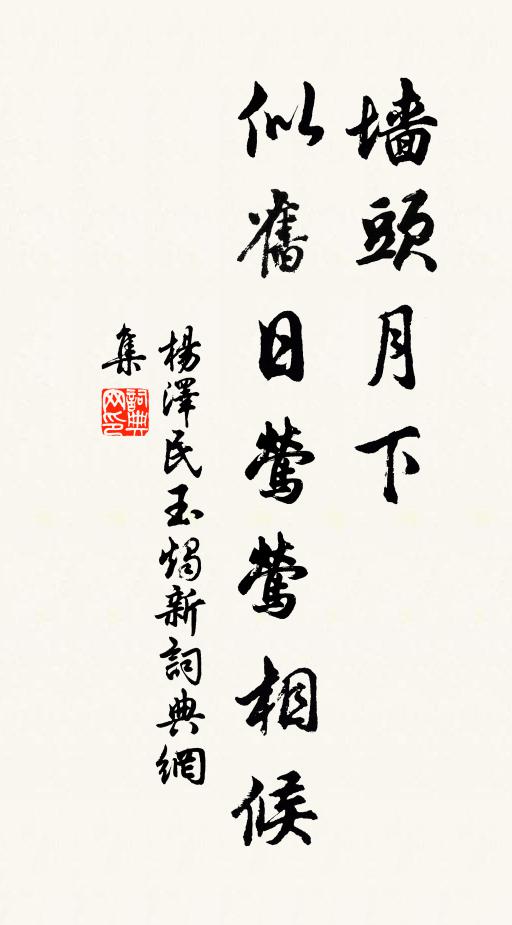 墙頭月下
似舊日鶯鶯相候
楊澤民玉燭新詞典網
集
詞典網印